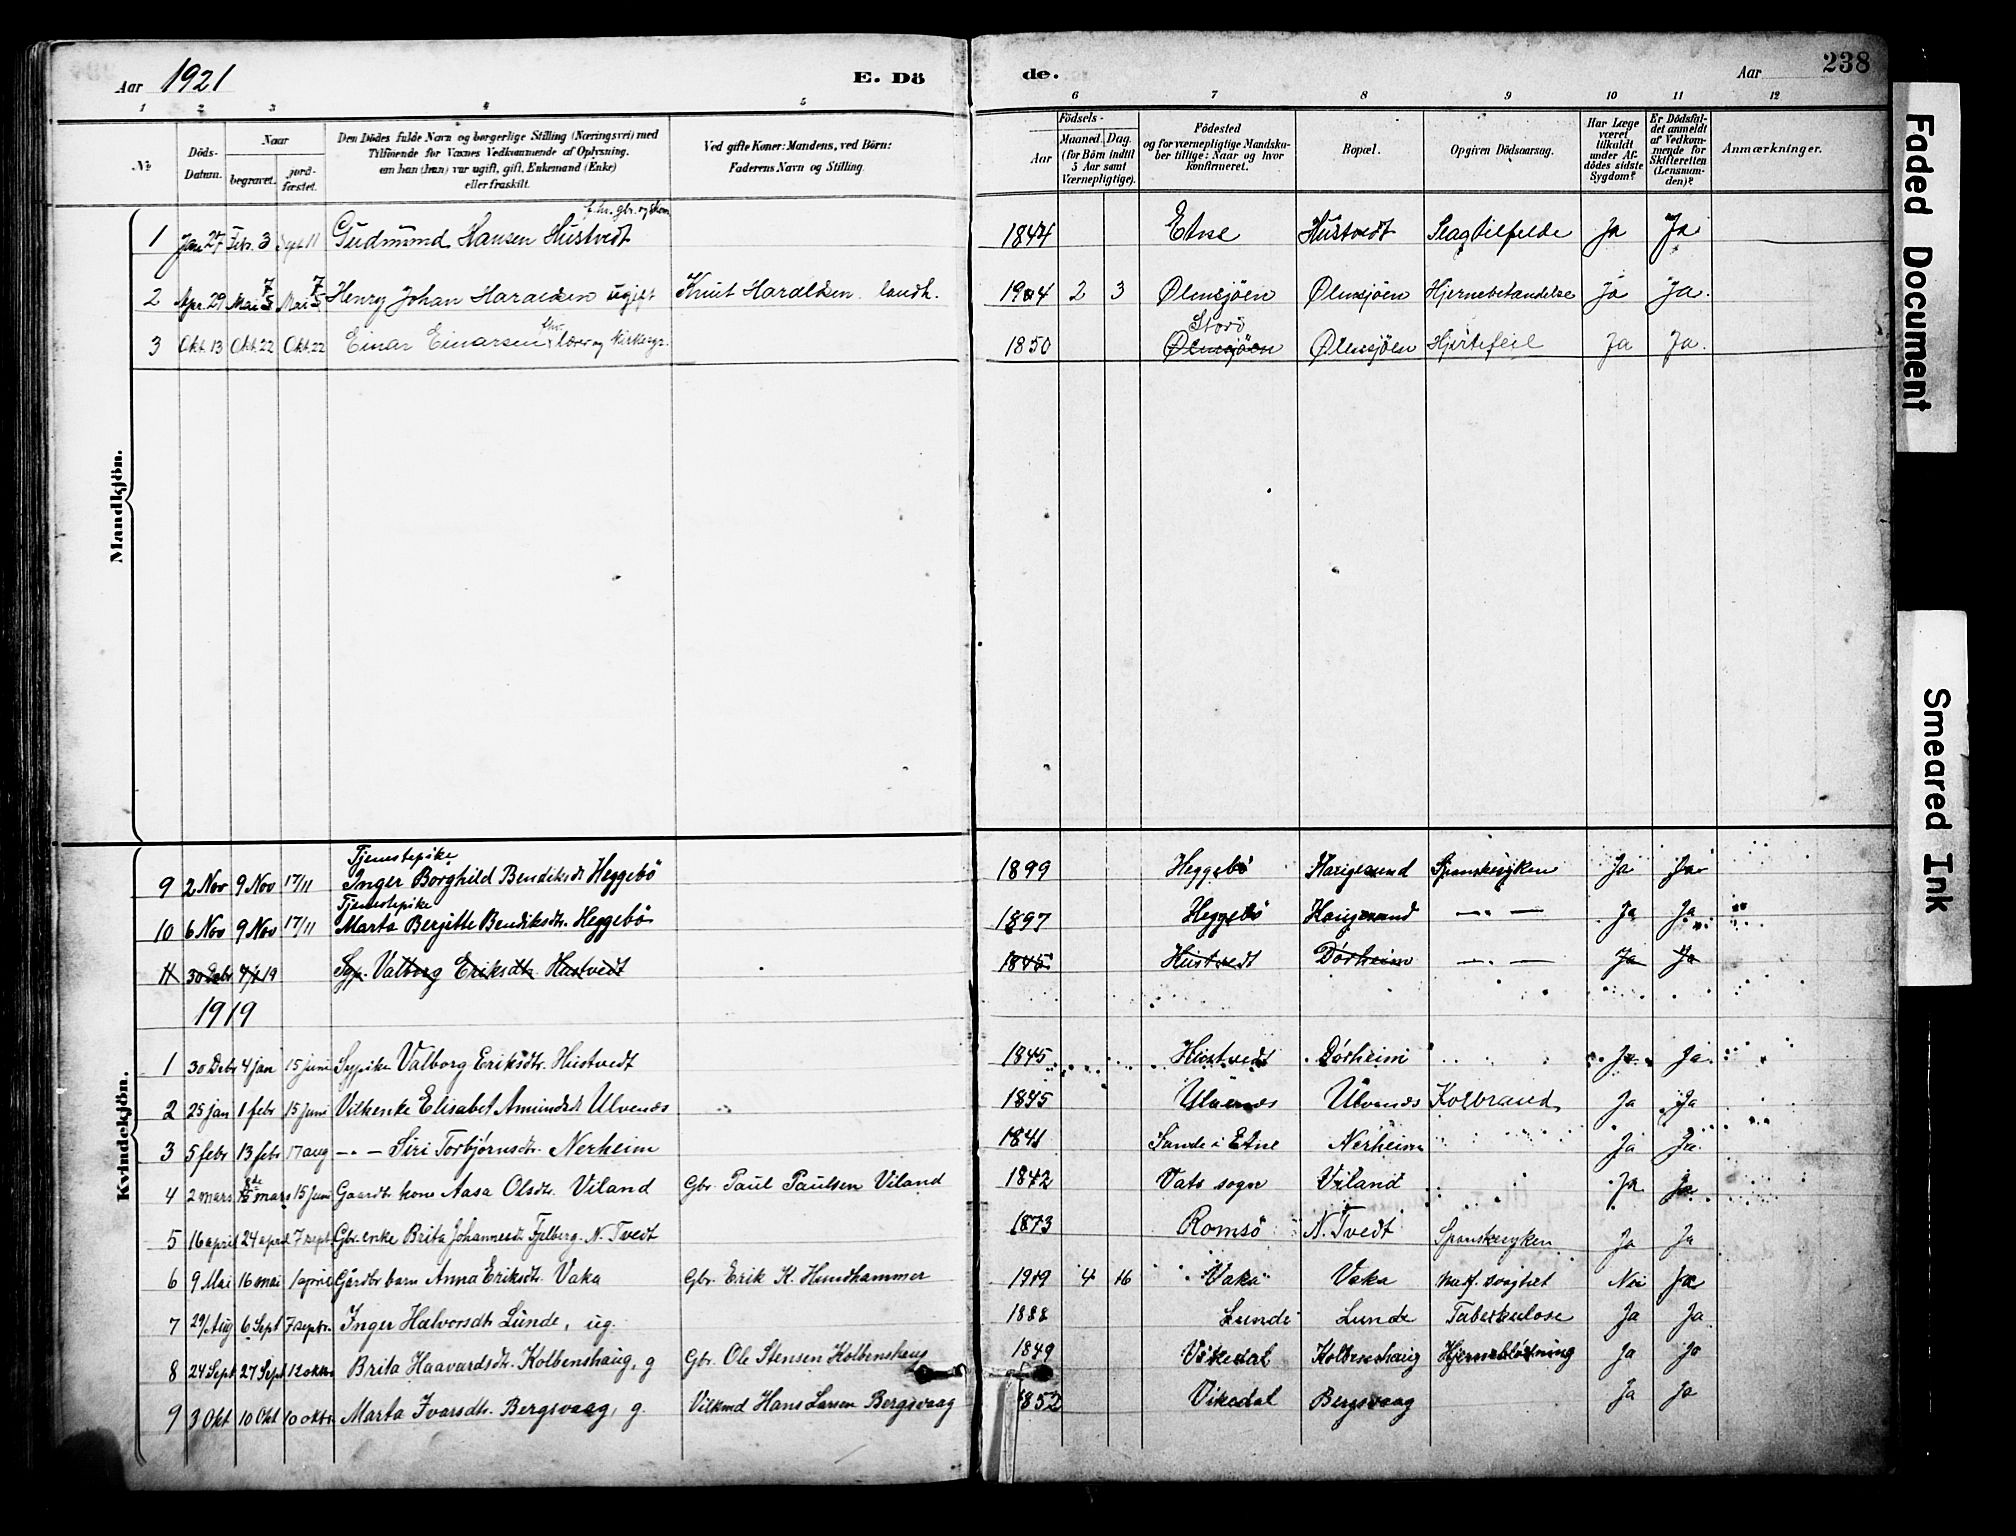 Aar 1921 E. Dö de. Aar 238
1 2 3 4 5 6 7 8 9 10 11 12
№ Döds-Datum. Naar begravet. jordfæstet. Den Dödes fulde Navn og borgerlige Stilling (Næringsvei) med Tilföiende for Voxnes Vedkommende af Oplysning, om han (hun) var ugift, gift, Enkemand (Enke) eller fraskilt. Ved gifte Koner: Mandens, ved Börn: Faderens Navn og Stilling. Födsels- Aar Maaned. Dag. (for Börn indtil 5 Aar samt Værnepligtige). Födested og for værnepligtige Mandskaber tillige: Naar og hvor konfirmeret. Bopæl. Opgiven Dödsaarsag. Har Læge været tilkaldt under Afdödes sidste Sygdom? Er Dödsfaldet anmeldt af Vedkommende for Skifteretten (Lensmanden)? Anmærkninger.
Mandkjön.
1 Jan 27 Febr. 3 Sept 11 Gudmund Hansen Hustvedt 1844 Etne Hustvedt Slagtilfelde Ja Ja
2 Apr. 29 Mai 7 Mai 7 Henry Johan Haraldsen ugift Knut Haraldsen landh. 1904 2 3 Ølensjöen Ølensjöen Hjernebetændelse Ja Ja.
Stord
3 Okt. 13 Okt. 22 Okt. 22 Einar Einarsen fhv. lærer og kirkesgr. 1850 Ølensjöen Ølensjöen Hjertefeil Ja Ja.
Kvindekjön.
Tjenestepike
9 2 Nov 9 Nov 17/11 Inger Borghild Bendiksdt Heggebö 1899 Heggebö Haugesund Spanskesyken Ja Ja
Tjenestepike
10 6 Nov 9 Nov 17/11 Marta Berjette Bendiksdtr. Heggebö 1897 Heggebö Haugesund —„— Ja Ja
11 30 Debr 4/1 19 Syp. Valborg Eriksdtr. Hustvedt 1845 Hustvedt Dörheim —„— Ja Ja
1919
1 30 Debr 4 jan 15 juni Sypike Valborg Eriksdtr. Hustvedt 1845 Hustvedt Dörheim Ja Ja
2 25 jan 1 febr 15 juni Vilkenke Elisabet Amundsdt Ulvenæs 1845 Ulvenæs Ulvenæs Kolbrand Ja Ja
3 5 febr 13 febr 17 aug —„— Siri Torbjörnsdtr. Nerheim 1841 Sande i Etne Nerheim Ja Ja
4 2 mars mars 15 juni Gaardbr kone Aasa Olsdtr. Viland Gbr. Paul Paulsen Viland 1842 Vats sogn Viland Ja Ja
5 16 april 24 april 7 sept Gbr. enke Brita Johannesdt Fjelberg. N. Tvedt 1873 Romsö N. Tvedt Spanskesyken Ja Ja
6 9 Mai 16 mai 1 april Gårdbr barn Anna Eriksdtr. Vaka Gbr. Erik K. Hundhammer 1919 4 16 Vaka Vaka Med. svaghet Nei Ja
7 29/Aug 6 Sept 7 septbr. Inger Halvorsdtr Lunde, ug. 1888 Lunde Lunde Tuberkulose Ja Ja
8 24 Sept 27 Sept 12 oktbr Brita Haavardsdtr. Kolbenshaug, g Gbr. Ole Stensen Kolbenshaug 1849 Vikedal Kolbenshaug Hjerneblödning Ja Ja
9 3 Okt 10 Okt 10 oktbr Marta Ivarsdtr. Bergsvaag, g. Vilkmd Hans Larsen Bergsvaag 1852 Vikedal Bergsvaag Ja Ja
Faded Document
Smeared Ink